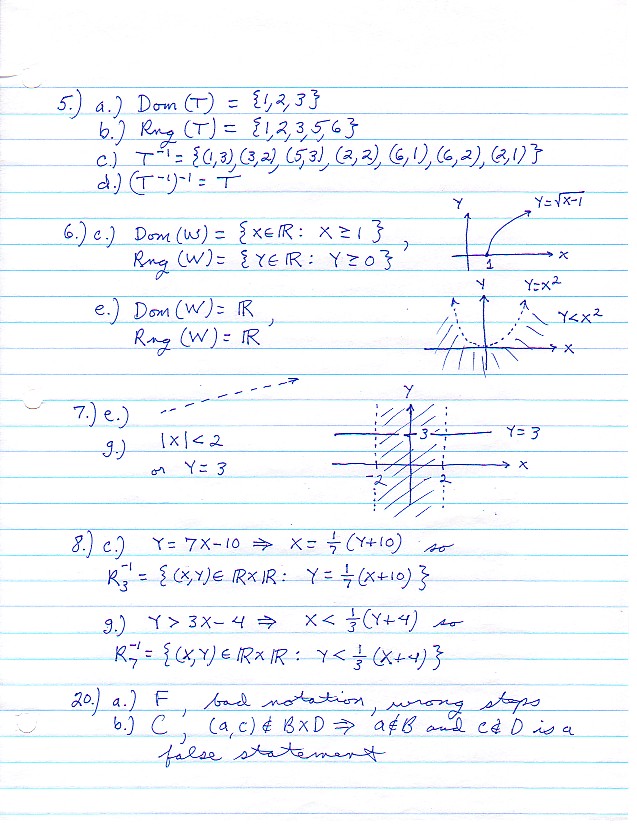 5.) a.) Dom (T) = {1,2,3}
b.) Rng (T) = {1,2,3,5,6}
c.) T⁻¹ = {(1,3), (3,2), (5,3), (2,2), (6,1), (6,2), (2,1)}
d.) (T⁻¹)⁻¹ = T
Y Y=√X-1
6.) c.) Dom (W) = {X∈ℝ: X ≥ 1},
Rng (W) = {Y∈ℝ: Y ≥ 0}
1 X
Y Y=X²
e.) Dom (W) = ℝ,
Y<X²
Rng (W) = ℝ
X
7.) e.)
Y
g.) |X| < 2
3 Y=3
or Y = 3
X
-2 2
8.) c.) Y = 7X-10 ⇒ X = 1/7 (Y+10) so
R₃⁻¹ = {(X,Y)∈ ℝXℝ: Y = 1/7 (X+10)}
g.) Y > 3X-4 ⇒ X < 1/3 (Y+4) so
R₇⁻¹ = {(X,Y)∈ ℝXℝ: Y < 1/3 (X+4)}
20.) a.) F, bad notation, wrong steps
b.) C, (a,c)∉ BXD ⇒ a∉B and c∉D is a
false statement